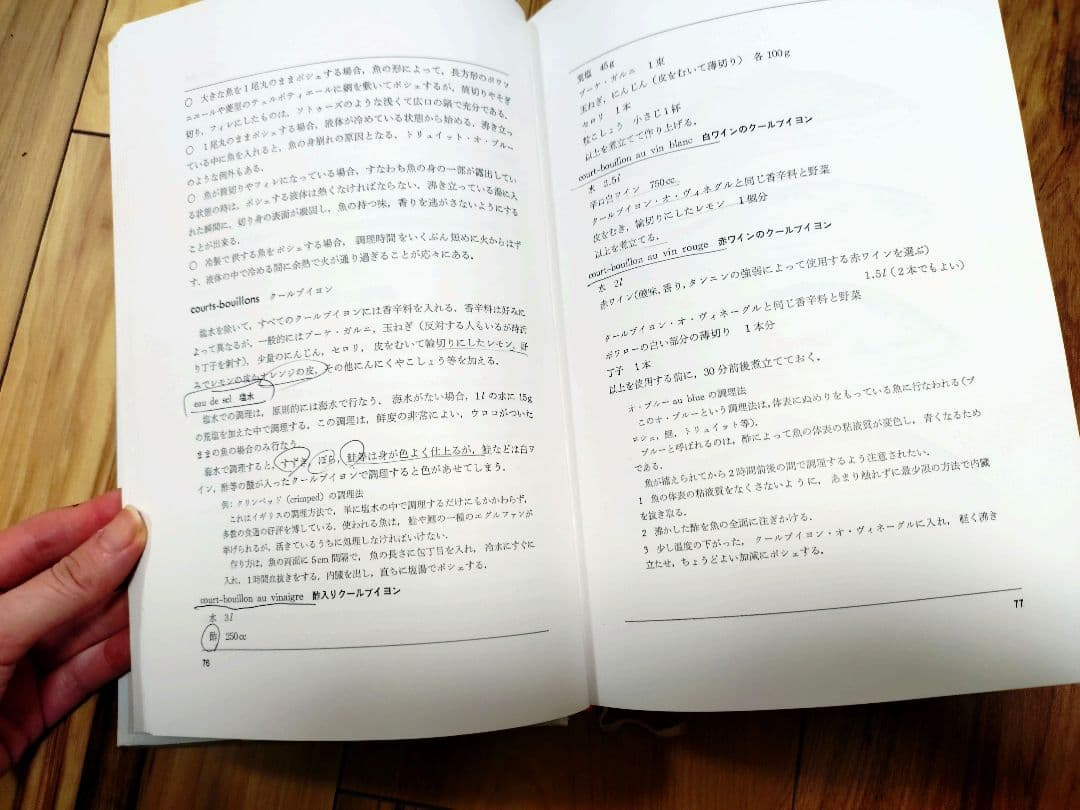 ○ 大きな魚を1尾丸のままポシェする場合，魚の形によって，長方形のポワソ
ニエールや菱型のテュルボティエールに網を敷いてポシェするが，筒切りやそぎ
切り，フィレにしたものは，ソトゥーズのような浅くて広口の鍋で充分である。
○ 1尾丸のままポシェする場合，液体が冷めている状態から始める。沸き立っ
ている中に魚を入れると，魚の身崩れの原因となる。トリュイット・オ・ブルー
のような例外もある。
○ 魚が筒切りやフィレになっている場合，すなわち魚の身の一部が露出してい
る状態の時は，ポシェする液体は熱くなければならない。沸き立っている湯に入
れた瞬間に，切り身の表面が凝固し，魚の持つ味，香りを逃がさないようにする
ことが出来る。
○ 冷製で供する魚をポシェする場合，調理時間をいくぶん短めに火からはず
す。液体の中で冷める間に余熱で火が通り過ぎることが応々にある。
courts-bouillons クールブイヨン
塩水を除いて，すべてのクールブイヨンには香辛料を入れる。香辛料は好みに
よって異なるが，一般的にはブーケ・ガルニ，玉ねぎ（反対する人もいるが時折
り丁子を刺す），少量のにんじん，セロリ，皮をむいて輪切りにしたレモン，好
みでレモンの皮かオレンジの皮，その他ににんにくやこしょう等を加える。
eau de sel 塩水
塩水での調理は，原則的には海水で行なう。海水がない場合，1lの水に15g
の荒塩を加えた中で調理する。この調理は，鮮度の非常によい，ウロコがついた
ままの魚の場合のみ行なう。
海水で調理すると，すずき，ぼら，鮭等は身が色よく仕上るが，鮭などは白ワ
イン，酢等の酸が入ったクールブイヨンで調理すると色があせてしまう。
例：クリンペッド（crimped）の調理法
これはイギリスの調理方法で，単に塩水の中で調理するだけにもかかわらず，
多数の食通の好評を博している。使われる魚は，鮭や鱈の一種のエグルファンが
挙げられるが，活きているうちに処理しなければいけない。
作り方は，魚の両面に5cm間隔で，魚の長さに包丁目を入れ，冷水にすぐに
入れ，1時間血抜きをする。内臓を出し，直ちに塩湯でポシェする。
court-bouillon au vinaigre 酢入りクールブイヨン
水 3l
酢 250cc
76
荒塩 45g
ブーケ・ガルニ 1束
玉ねぎ，にんじん（皮をむいて薄切り） 各100g
セロリ 1本
粒こしょう 小さじ1杯
以上を煮立てて作り上げる。
court-bouillon au vin blanc 白ワインのクールブイヨン
水 2.5l
辛口白ワイン 750cc
クールブイヨン・オ・ヴィネグルと同じ香辛料と野菜
皮をむき，輪切りにしたレモン 1個分
以上を煮立てる。
court-bouillon au vin rouge 赤ワインのクールブイヨン
水 2l
赤ワイン（酸味，香り，タンニンの強弱によって使用する赤ワインを選ぶ）
1.5l（2本でもよい）
クールブイヨン・オ・ヴィネーグルと同じ香辛料と野菜
ポワローの白い部分の薄切り 1本分
丁子 1本
以上を使用する前に，30分前後煮立てておく。
オ・ブルー au blue の調理法
このオ・ブルーという調理法は，体表にぬめりをもっている魚に行なわれる（ブ
ロシェ，鯉，トリュイット等）。
ブルーと呼ばれるのは，酢によって魚の体表の粘液質が変色し，青くなるため
である。
魚が捕えられてから2時間前後の間で調理するよう注意されたい。
1 魚の体表の粘液質をなくさないように，あまり触れずに最少限の方法で内臓
を抜き取る。
2 沸かした酢を魚の全面に注ぎかける。
3 少し温度の下がった，クールブイヨン・オ・ヴィネーグルに入れ，軽く沸き
立たせ，ちょうどよい加減にポシェする。
77